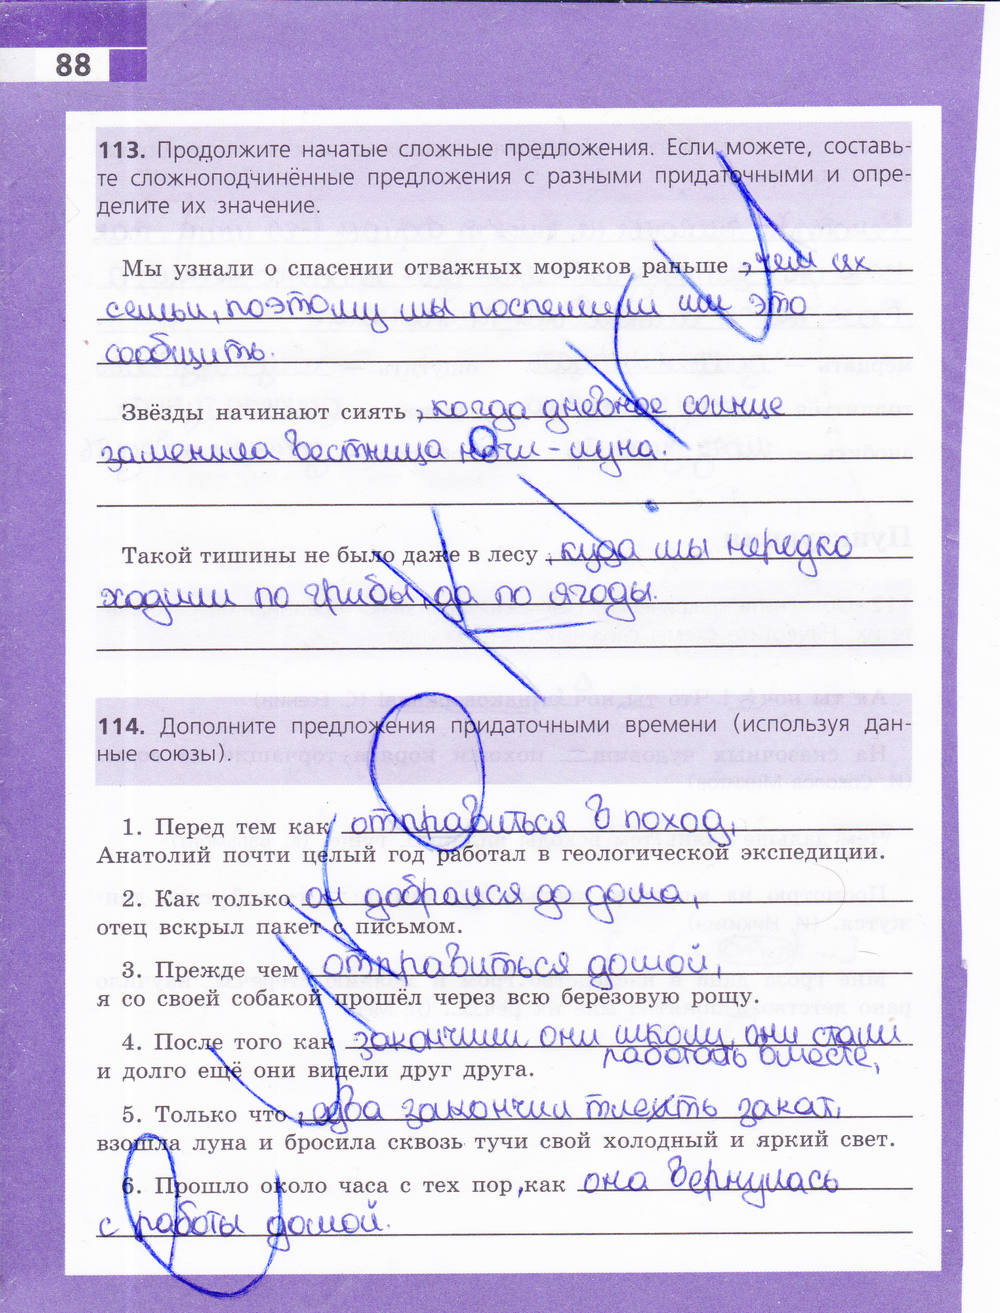 88
113. Продолжите начатые сложные предложения. Если можете, составь-
те сложноподчинённые предложения с разными придаточными и опре-
делите их значение.
Мы узнали о спасении отважных моряков раньше , чем их
семьи, поэтому мы поспешили им это
сообщить.
Звёзды начинают сиять , когда дневное солнце
заменила вестница ночи - луна.
Такой тишины не было даже в лесу , куда мы нередко
ходили по грибы, да по ягоды.
114. Дополните предложения придаточными времени (используя дан-
ные союзы).
1. Перед тем как отправиться в поход,
Анатолий почти целый год работал в геологической экспедиции.
2. Как только он добрался до дома,
отец вскрыл пакет с письмом.
3. Прежде чем отправиться домой,
я со своей собакой прошёл через всю берёзовую рощу.
4. После того как закончили они школу, они стали
работать вместе,
и долго ещё они видели друг друга.
5. Только что , едва закончил тлеть закат,
взошла луна и бросила сквозь тучи свой холодный и яркий свет.
6. Прошло около часа с тех пор, как она вернулась
с работы домой.